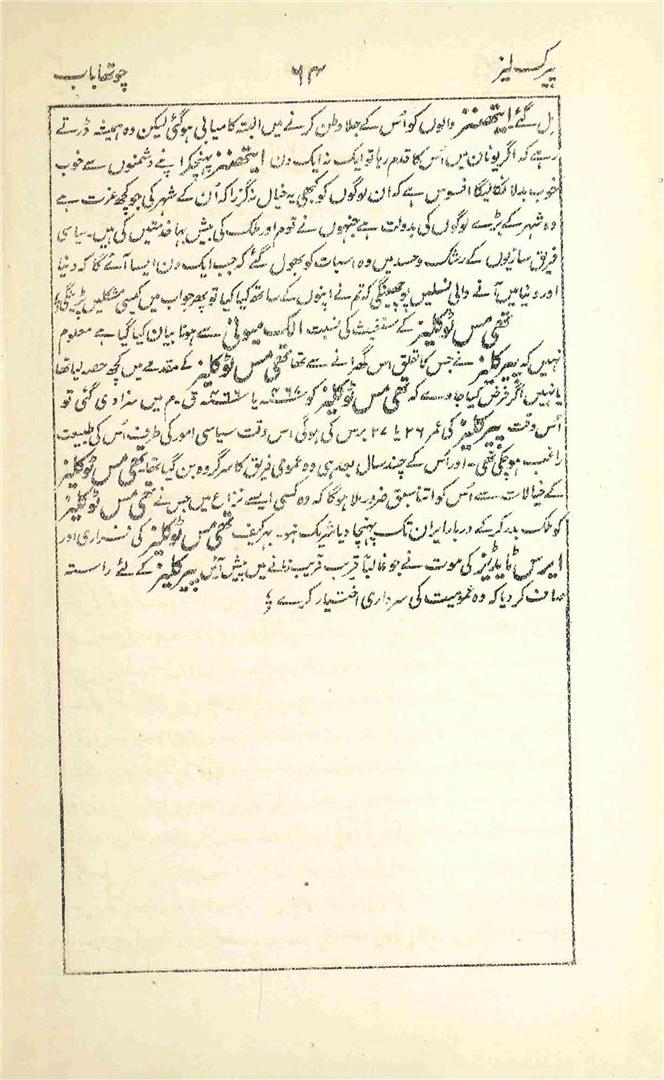 پیرک لیز ۶۴ چوتھا باب
مل گئے ایتھنز والوں کو اُس کے جلاوطن کرنے میں البتہ کامیابی ہوگئی لیکن وہ ہمیشہ ڈرتے
رہے کہ اگر یونان میں اُس کا قدم رہا تو ایک نہ ایک دن ایتھنز پہنچکر اپنے دشمنوں سے خوب
خوب بدلا نکالیگا افسوس ہے کہ ان لوگوں کو کبھی یہ خیال نہ گزرا کہ اُن کے شہر کی جو کچھ عزت ہے
وہ شہر کے بڑے لوگوں کی بدولت ہے جنہوں نے قوم اور ملک کی بیش بہا خدمتیں کی ہیں۔ سیاسی
فریق سازیوں کے رشک و حسد میں وہ اسبات کو بھول گئے کہ جب ایک دن ایسا آئے گا کہ دنیا
اور دنیا میں آنے والی نسلیں پوچھینگی کہ تم نے اپنوں کے ساتھ کیا کیا تو پھر جواب میں کیسی مشکلیں پڑینگی؛
تھمی مس ٹوکلیز کے متعلق کی نسبت الک میونی سے ہونا بیان کیا گیا ہے معلوم
نہیں کہ پیرکلیز نے جس کا تعلق اس گھرانے سے تھا تھمی مس ٹوکلیز کے مقدمے میں کچھ حصہ لیا تھا
یا نہیں اگر فرض کیا جاوے کہ تھمی مس ٹوکلیز کو ۴۶۷ یا ۴۶۶ ق۔م میں سزا دی گئی تو
اُس وقت پیرکلیز کی عمر ۲۶ یا ۲۷ برس کی ہوئی اس وقت سیاسی امور کی طرف اُس کی طبیعت
راغب ہوچکی تھی۔ اور اُس کے چند سال بعد ہی وہ عمومی فریق کا سرگروہ بن گیا تھا تھمی مس ٹوکلیز
کے خیالات سے اُس کو اتنا سبق ضرور ملا ہوگا کہ وہ کسی ایسے نزاع میں جس نے تھمی مس ٹوکلیز
کو ملک بدر کرکے دربار ایران تک پہنچا دیا شریک نہو۔ بہرکیف تھمی مس ٹوکلیز کی فراری اور
ایرس ٹایڈیز کی موت نے جو غالباً قریب قریب زمانے میں پیش آئیں پیرکلیز کے لئے راستہ
صاف کر دیا کہ وہ عمومیت کی سرداری اختیار کرے؛